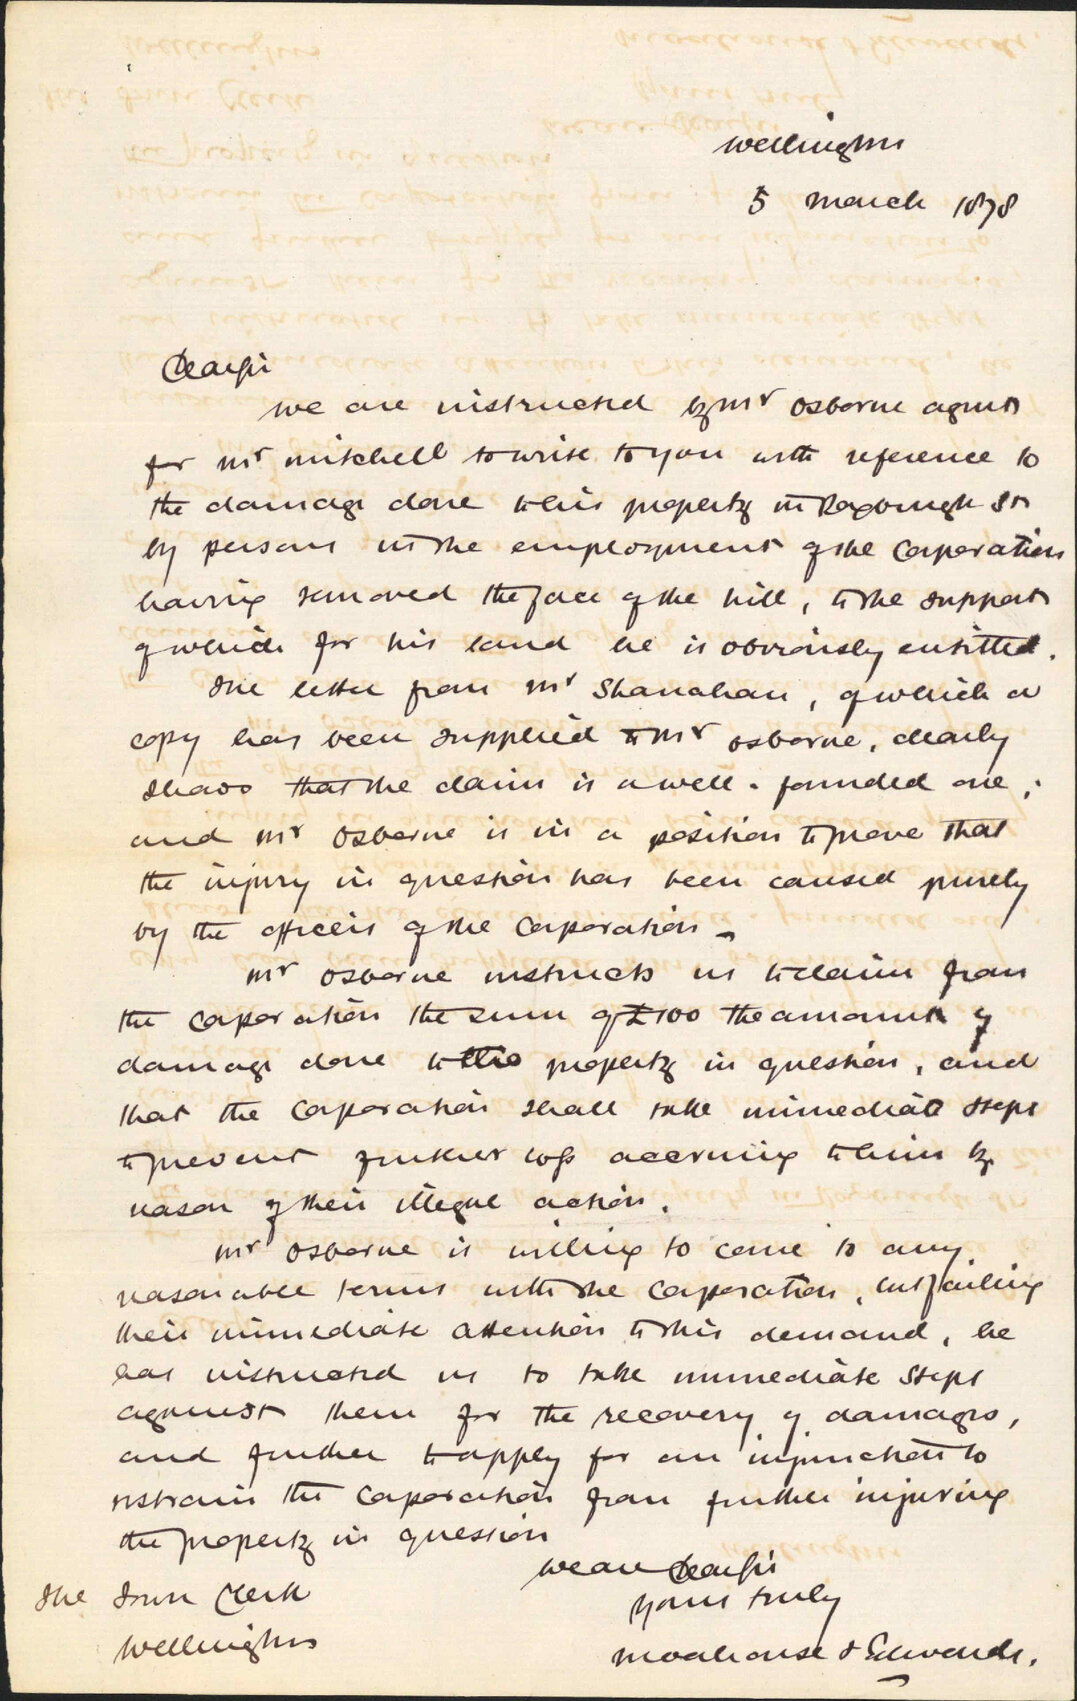 Wellington
5 March 1878
Dear Sir
We are instructed by Mr Osborne agent
for Mr Mitchell to write to you with reference to
the damage done to his property in Roxburgh St
by persons in the employment of the Corporation
having removed the face of the hill, to the support
of which for his land he is obviously entitled.
The letter from Mr Shanahan, of which a
copy has been supplied to Mr Osborne, clearly
shows that the claim is a well-founded one;
and Mr Osborne is in a position to prove that
the injury in question has been caused purely
by the officers of the Corporation –
Mr Osborne instructs us to claim from
the Corporation the sum of £100 the amount of
damage done to the property in question, and
that the Corporation shall take immediate steps
to prevent further loss accruing to him by
reason of their illegal action.
Mr Osborne is willing to come to any
reasonable terms with the Corporation, but failing
their immediate attention to this demand, he
has instructed us to take immediate steps
against them for the recovery of damages,
and further to apply for an injunction to
restrain the Corporation from further injuring
the property in question
We are Dear Sir
Yours truly
Moorhouse & Edwards.
The Town Clerk
Wellington